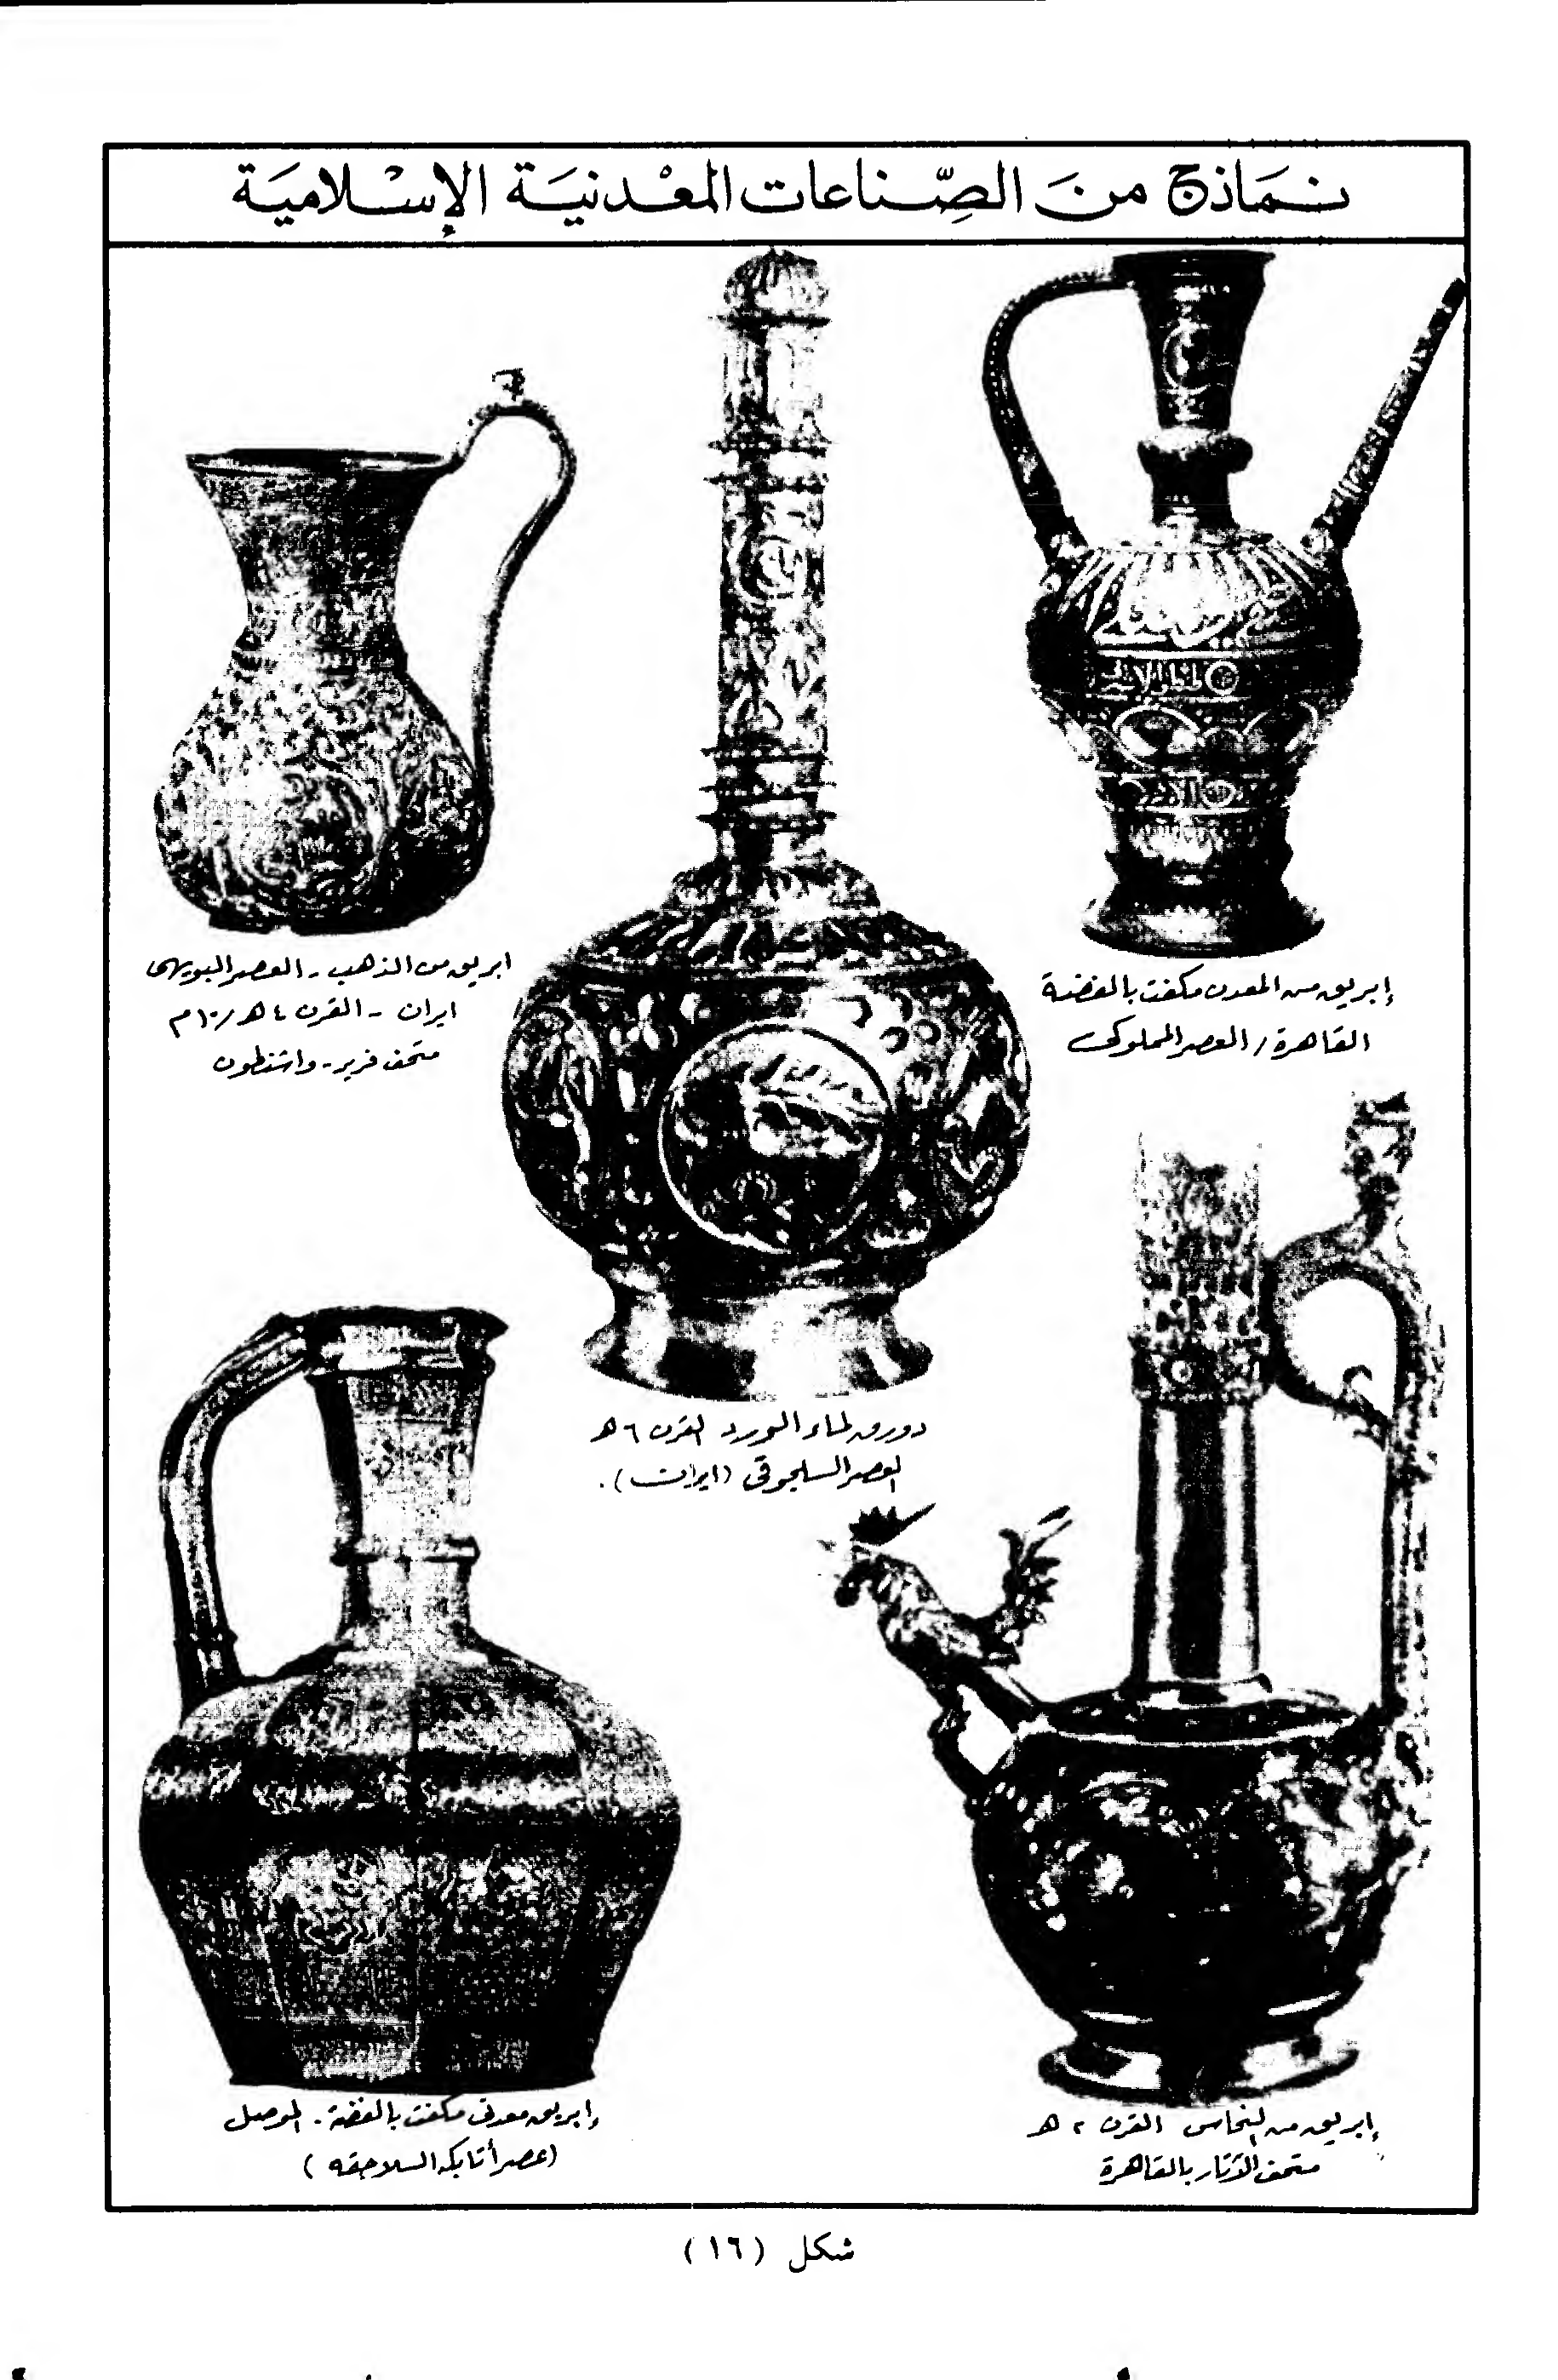 نماذج منَ الصِّناعات المعْدنيَة الإسْلاميَة
إبريق من المعدن مكفت بالفضة
القاهرة / العصر المملوكى
ابريق من الذهب - العصر البويهى
ايران - القرن ٤ هـ / ١٠ م
متحف فرير - واشنطون
دورق لماء الورد القرن ٦ هـ
العصر السلجوقى (ايران) .
إبريق من النحاس القرن ٢ هـ
متحف الآثار بالقاهرة
إبريق معدنى مكفت بالفضة . الموصل
(عصر أتابكه السلاجقه)
شكل (١٦)